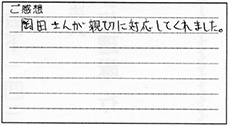 ご感想
岡田さんが親切に対応してくれました。